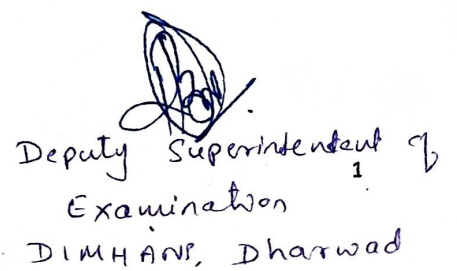 Deputy Superintendent of
1
Examination
DIMHANS, Dharwad